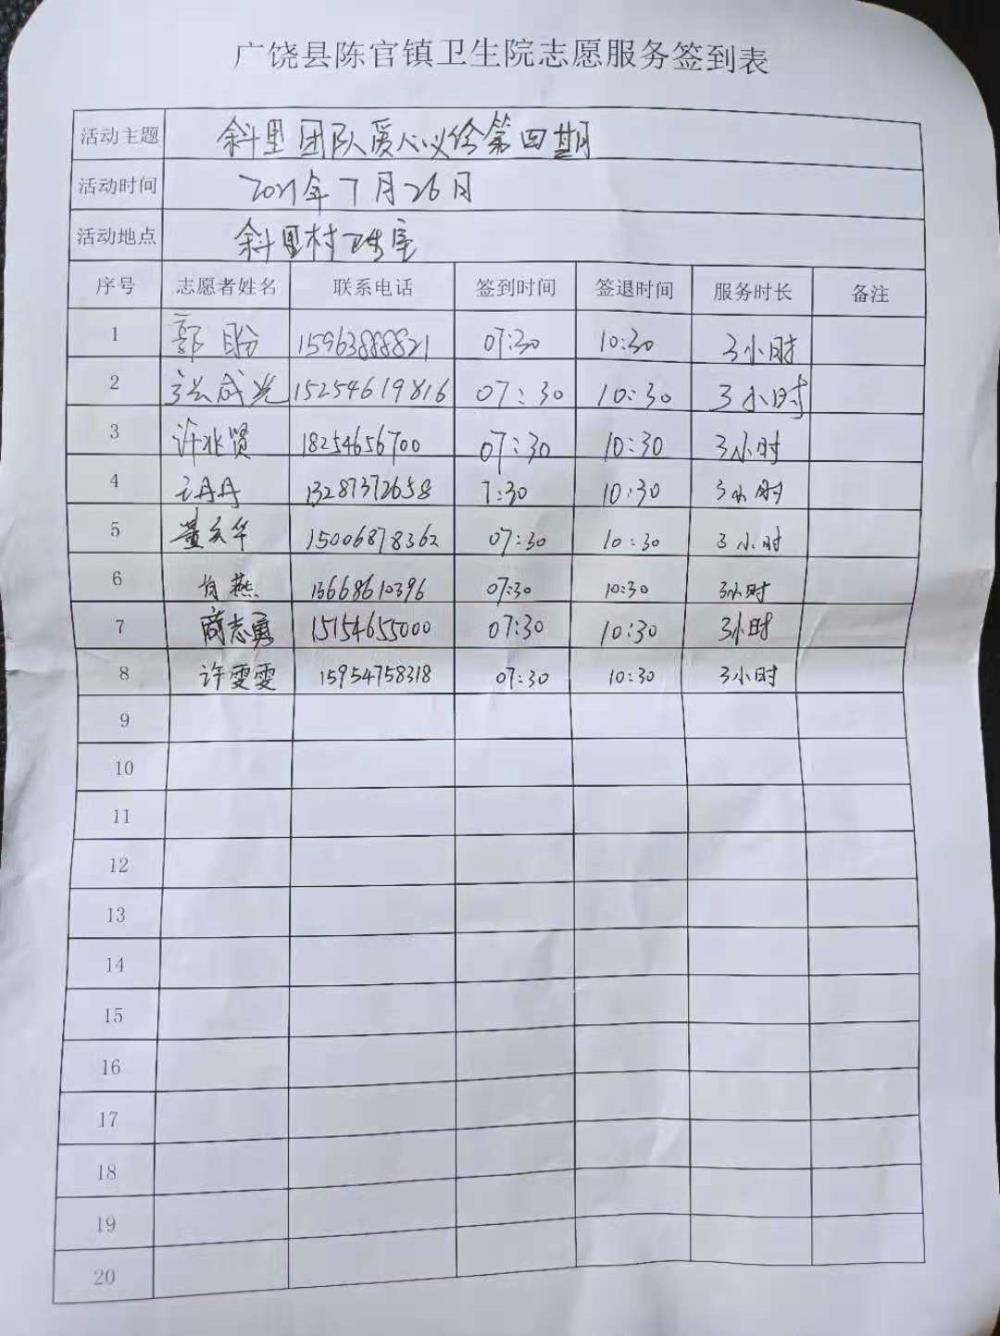 广饶县陈官镇卫生院志愿服务签到表
活动主题 斜里团队爱心义诊第四期
活动时间 2021年7月26日
活动地点 斜里村卫生室
序号 志愿者姓名 联系电话 签到时间 签退时间 服务时长 备注
1 郭盼 15963888821 07:30 10:30 3小时
2 张成光 15254619816 07:30 10:30 3小时
3 许兆贤 18254656700 07:30 10:30 3小时
4 13287372658 7:30 10:30 3小时
5 15006878362 07:30 10:30 3小时
6 肖燕 13668610396 07:30 10:30 3小时
7 商志勇 15154655000 07:30 10:30 3小时
8 许雯雯 15954758318 07:30 10:30 3小时
9
10
11
12
13
14
15
16
17
18
19
20